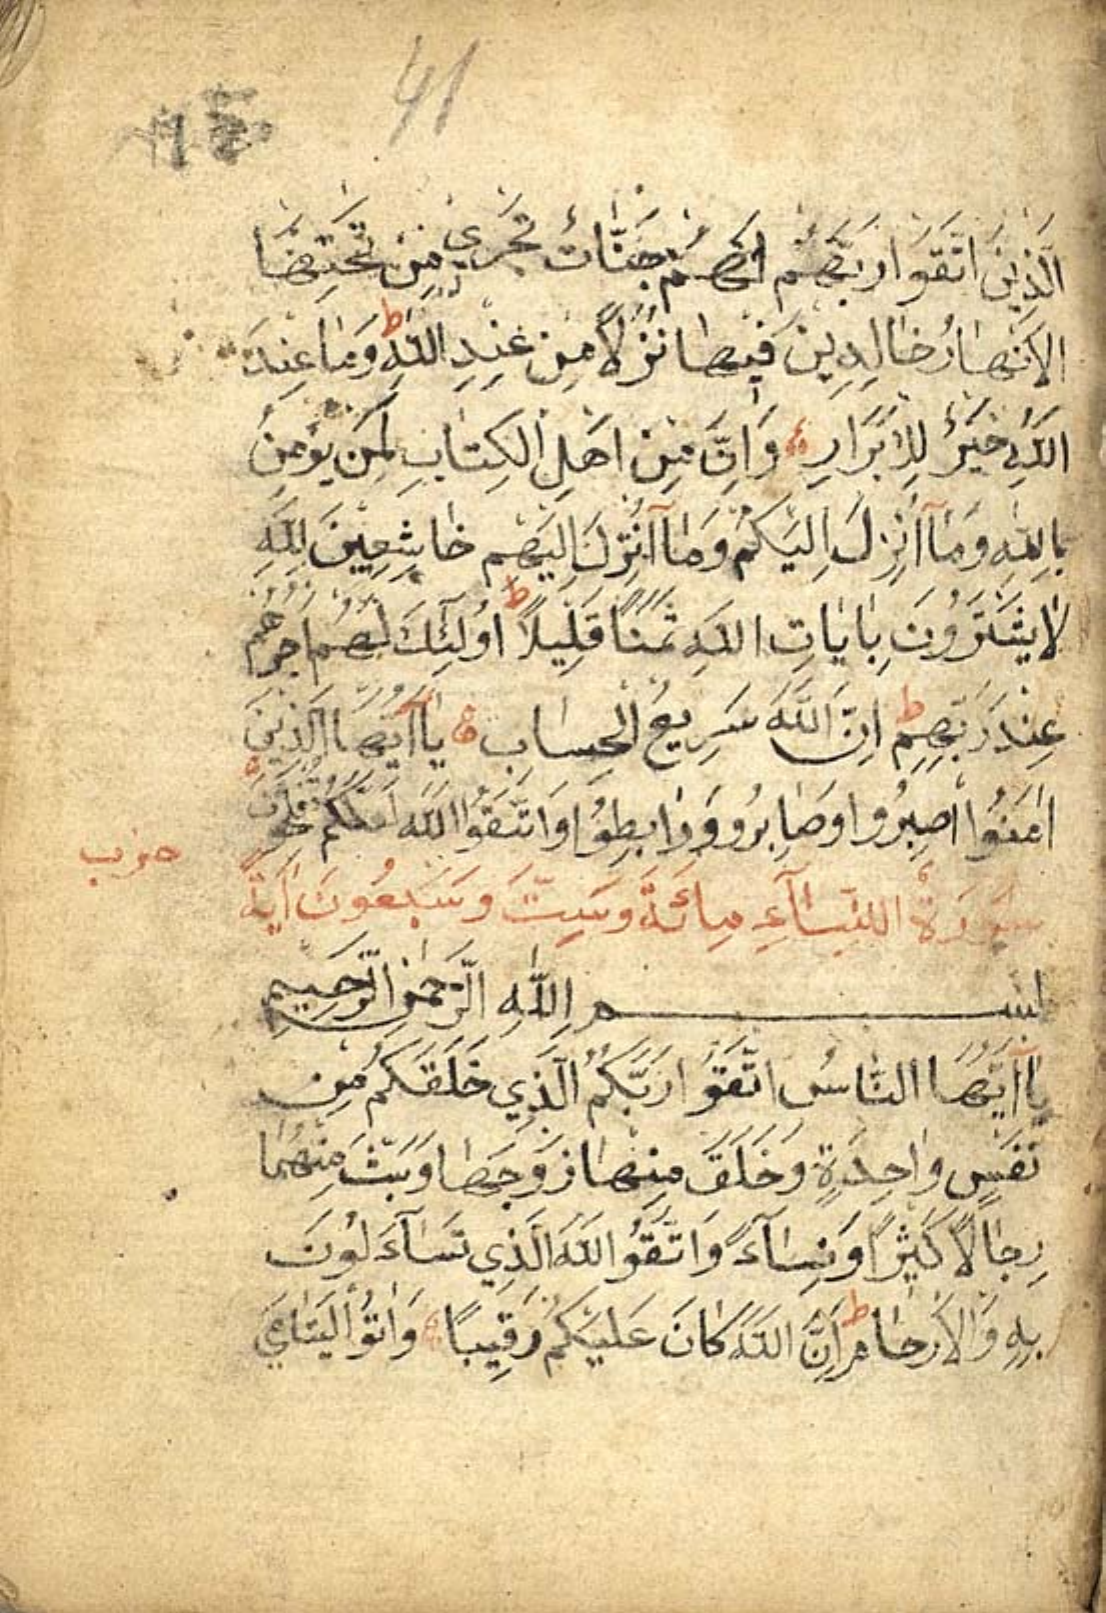 41
الَّذِينَ اتَّقَوْا رَبَّهُمْ لَهُمْ جَنَّاتٌ تَجْرِي مِنْ تَحْتِهَا
الاَنْهَارُ خَالِدِينَ فِيهَا نُزُلاً مِنْ عِنْدِ اللَّهِ ط وَمَا عِنْدَ
اللَّهِ خَيْرٌ لِلاَبْرَارِ وَاِنَّ مِنْ اَهْلِ الْكِتَابِ لَمَنْ يُؤْمِنُ
بِاللَّهِ وَمَآ اُنْزِلَ اِلَيْكُمْ وَمَآ اُنْزِلَ اِلَيْهِمْ خَاشِعِينَ لِلَّهِ
لاَ يَشْتَرُونَ بِاٰيَاتِ اللَّهِ ثَمَنًا قَلِيلاً ط اُولٰئِكَ لَهُمْ اَجْرُهُمْ
عِنْدَ رَبِّهِمْ ط اِنَّ اللَّهَ سَرِيعُ الْحِسَابِ يَآ اَيُّهَا الَّذِينَ
اٰمَنُوا اصْبِرُوا وَصَابِرُو وَرَابِطُوا وَاتَّقُوا اللَّهَ لَعَلَّكُمْ تُفْلِحُونَ
حزب
سُورَةُ النِّسَآءِ مِائَةٌ وَسِتٌّ وَسَبْعُونَ اٰيَةً
بسم اللَّهِ الرَّحْمٰنِ الرَّحِيمِ
يَآ اَيُّهَا النَّاسُ اتَّقُوا رَبَّكُمُ الَّذِي خَلَقَكُمْ مِنْ
نَفْسٍ وَاحِدَةٍ وَخَلَقَ مِنْهَا زَوْجَهَا وَبَثَّ مِنْهُمَا
رِجَالاً كَثِيرًا وَنِسَآءً وَاتَّقُوا اللَّهَ الَّذِي تَسَآءَلُونَ
بِهِ وَالاَرْحَامَ ط اِنَّ اللَّهَ كَانَ عَلَيْكُمْ رَقِيبًا وَاٰتُوا الْيَتَامَي